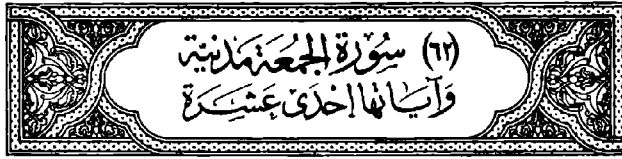 (٦٢) سُورَة الجُمُعَة مَدَنيّة
وَآيَاتُهَا إِحْدَى عَشِرَة